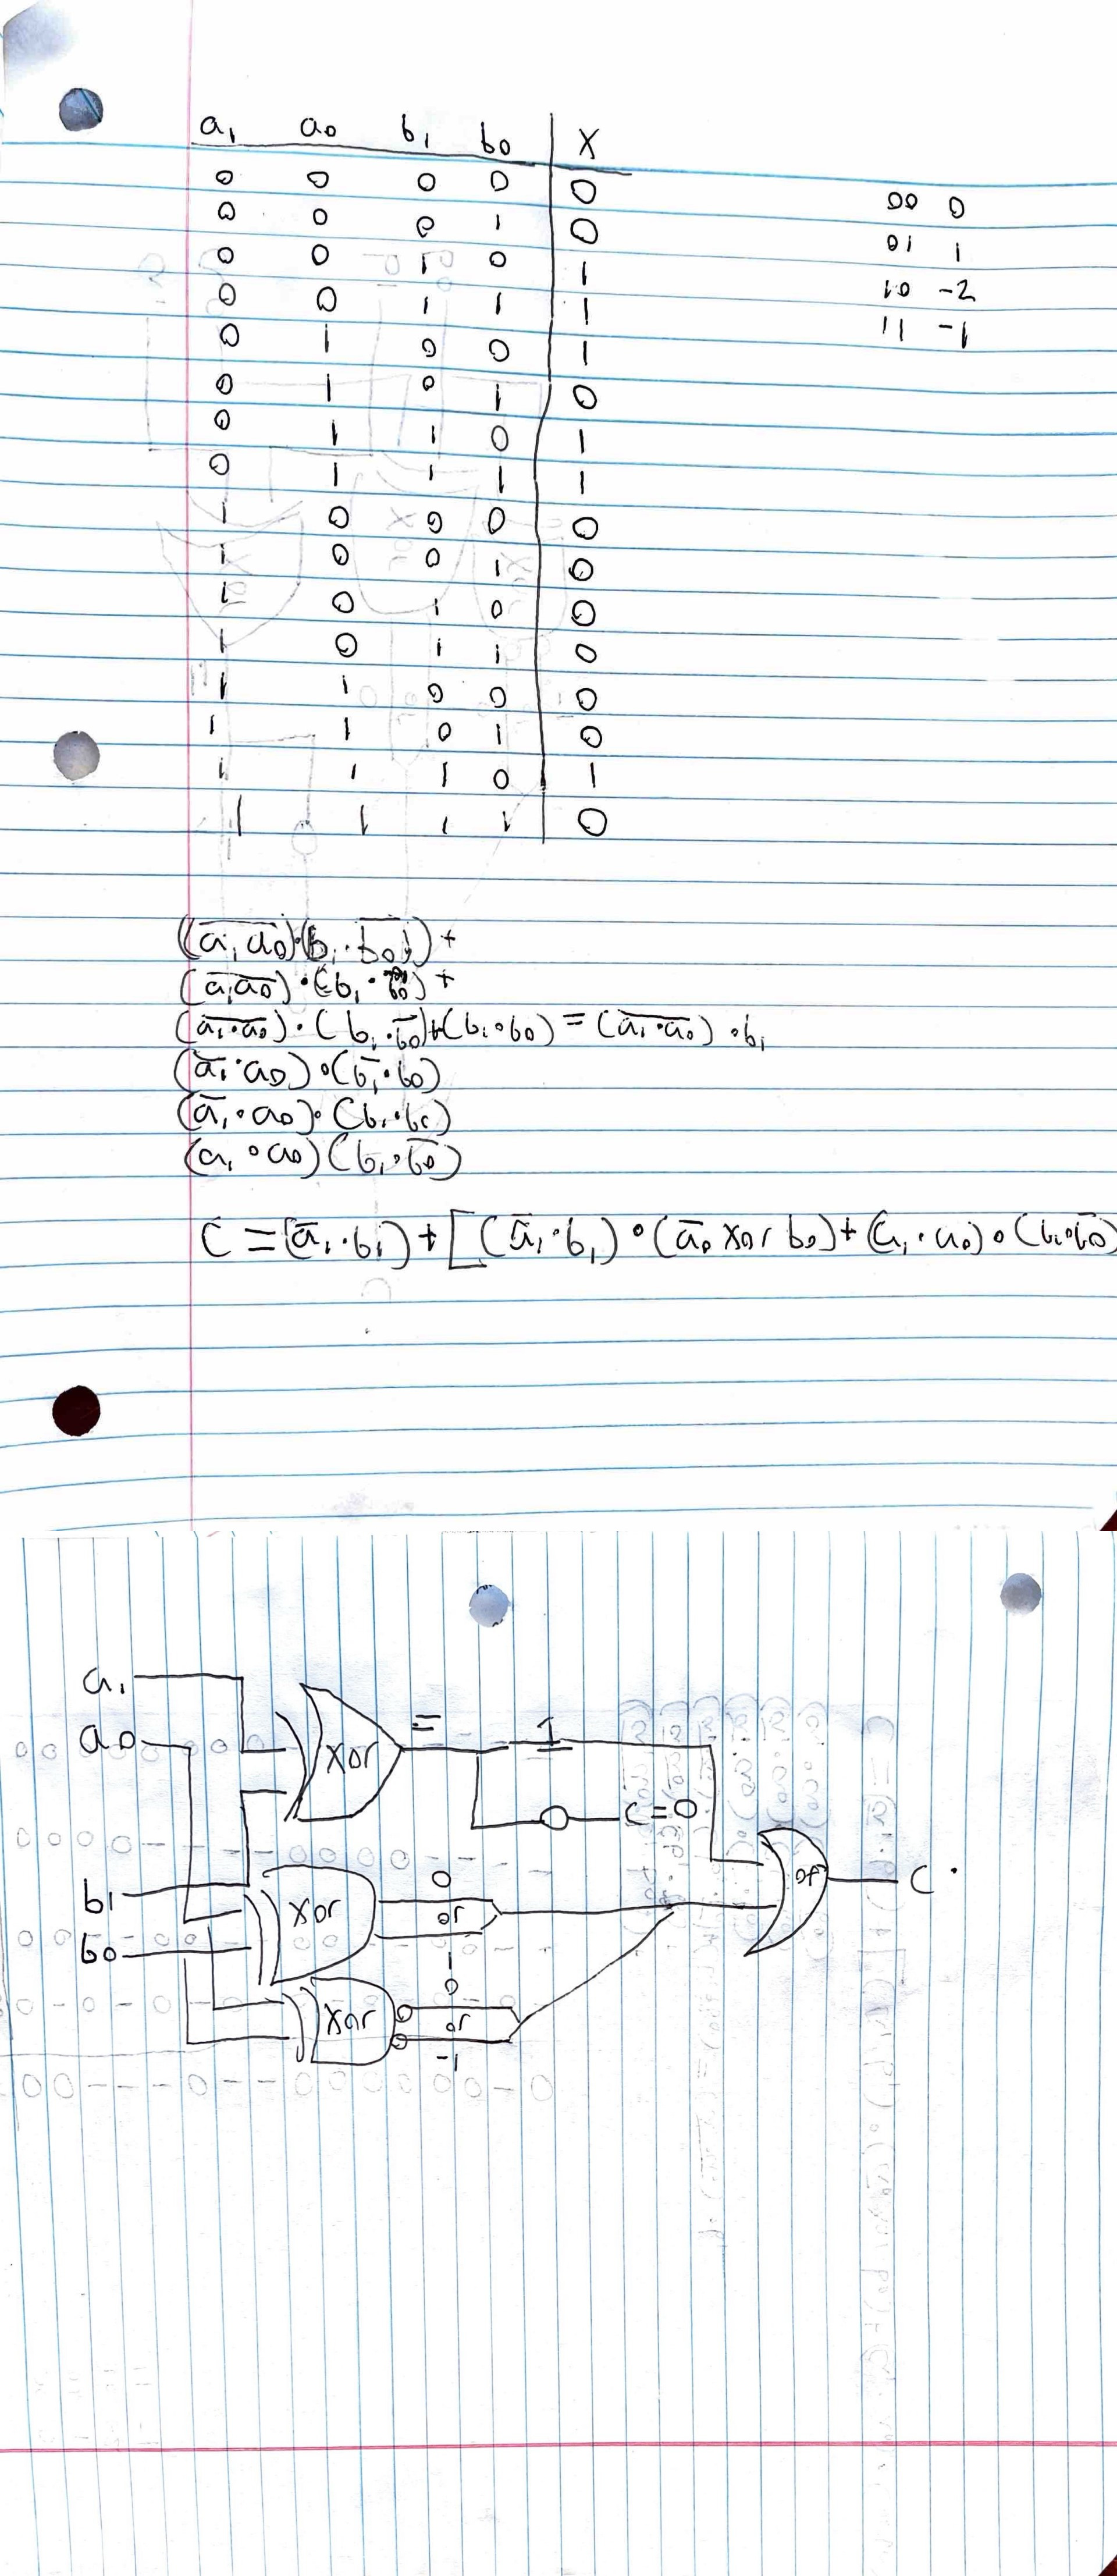 a₁ a₀ b₁ b₀ X
0 0 0 0 0
0 0 0 1 0
0 0 1 0 1
0 0 1 1 1
0 1 0 0 1
0 1 0 1 0
0 1 1 0 1
0 1 1 1 1
1 0 0 0 0
1 0 0 1 0
1 0 1 0 0
1 0 1 1 0
1 1 0 0 0
1 1 0 1 0
1 1 1 0 1
1 1 1 1 0
00 0
01 1
10 -2
11 -1
(a̅₁a̅₀)·(b₁·b̅₀) +
(a̅₁a̅₀)·(b₁· ) +
(a̅₁·a̅₀)·(b₁·b̅₀)+(b₁·b₀) = (a̅₁·a̅₀)·b₁
(a̅₁·a₀)·(b̅₁·b₀)
(a̅₁·a₀)·(b₁·b₀)
(a₁·a₀)(b₁·b̅₀)
C = (a̅₁·b₁) + [(a̅₁·b₁)·(a̅₀ xor b₀)+(a₁·a₀)·(b₁·b̅₀)
a₁
a₀
b₁
b₀
xor
=
1
C=0
xor
0
or
1
xor
0
or
-1
or
C.